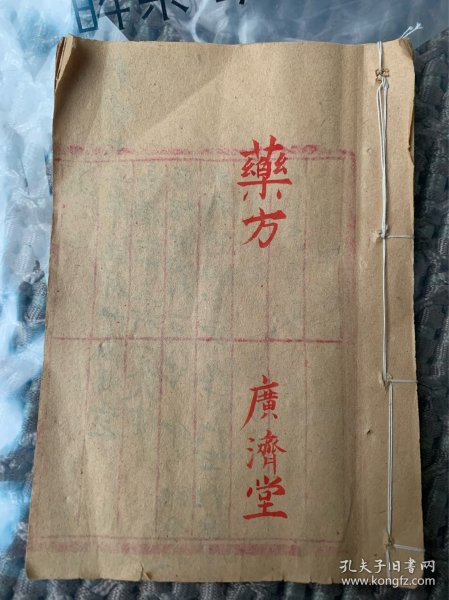 藥方
廣濟堂
孔夫子旧书网
www.kongfz.com